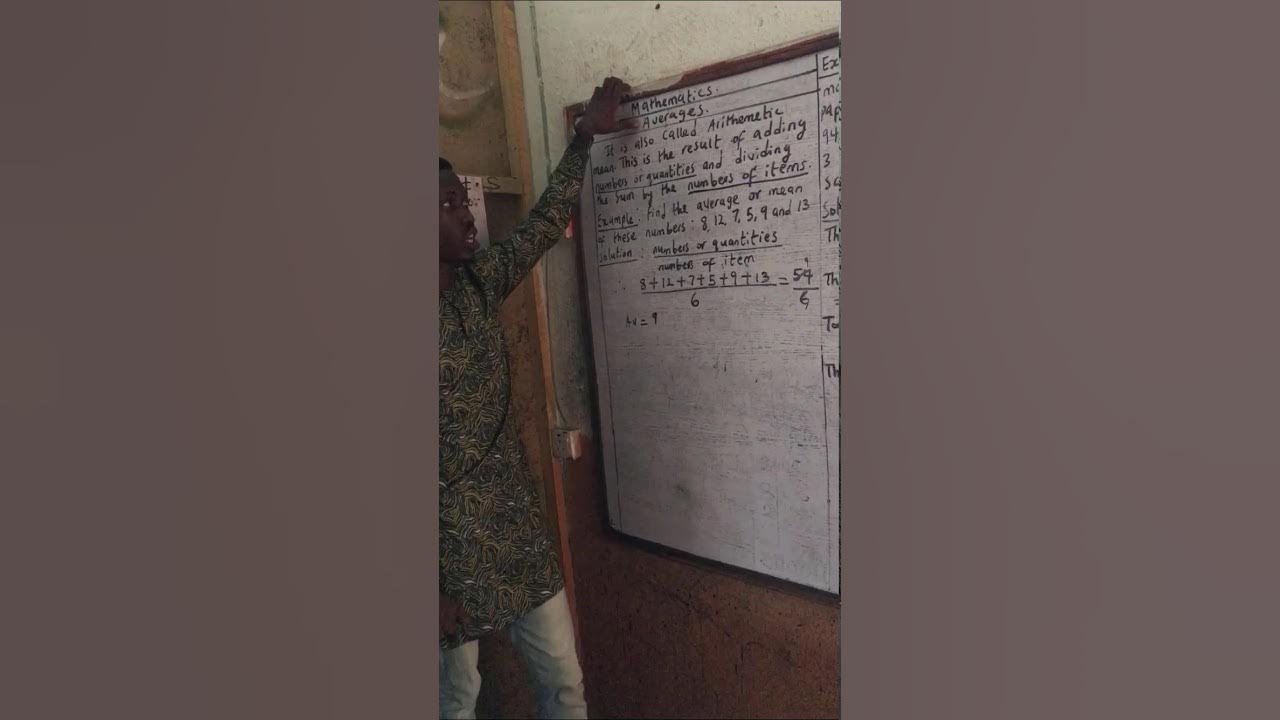 Mathematics.
Averages.
It is also called Arithemetic
mean. This is the result of adding
numbers or quantities and dividing
the sum by the numbers of items.
Example: Find the average or mean
of these numbers: 8, 12, 7, 5, 9 and 13
Solution: numbers or quantities
numbers of item
∴ 8+12+7+5+9+13 = 54
6 6
Av = 9
Ex
mi
pap
94
3
Sc
Sol
Th
Th
=
To
Th